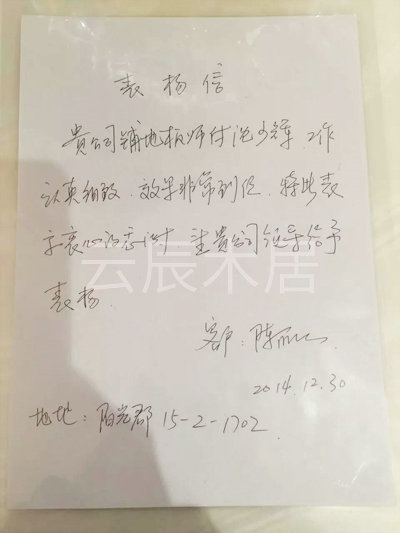 表扬信
贵公司铺地板师付 工作
认真细致，效果非常到位，特此表
示衷心的感谢！望贵公司领导给予
表扬
客户：陈
2014.12.30
地址：阳光郡 15-2-1702
云辰木居